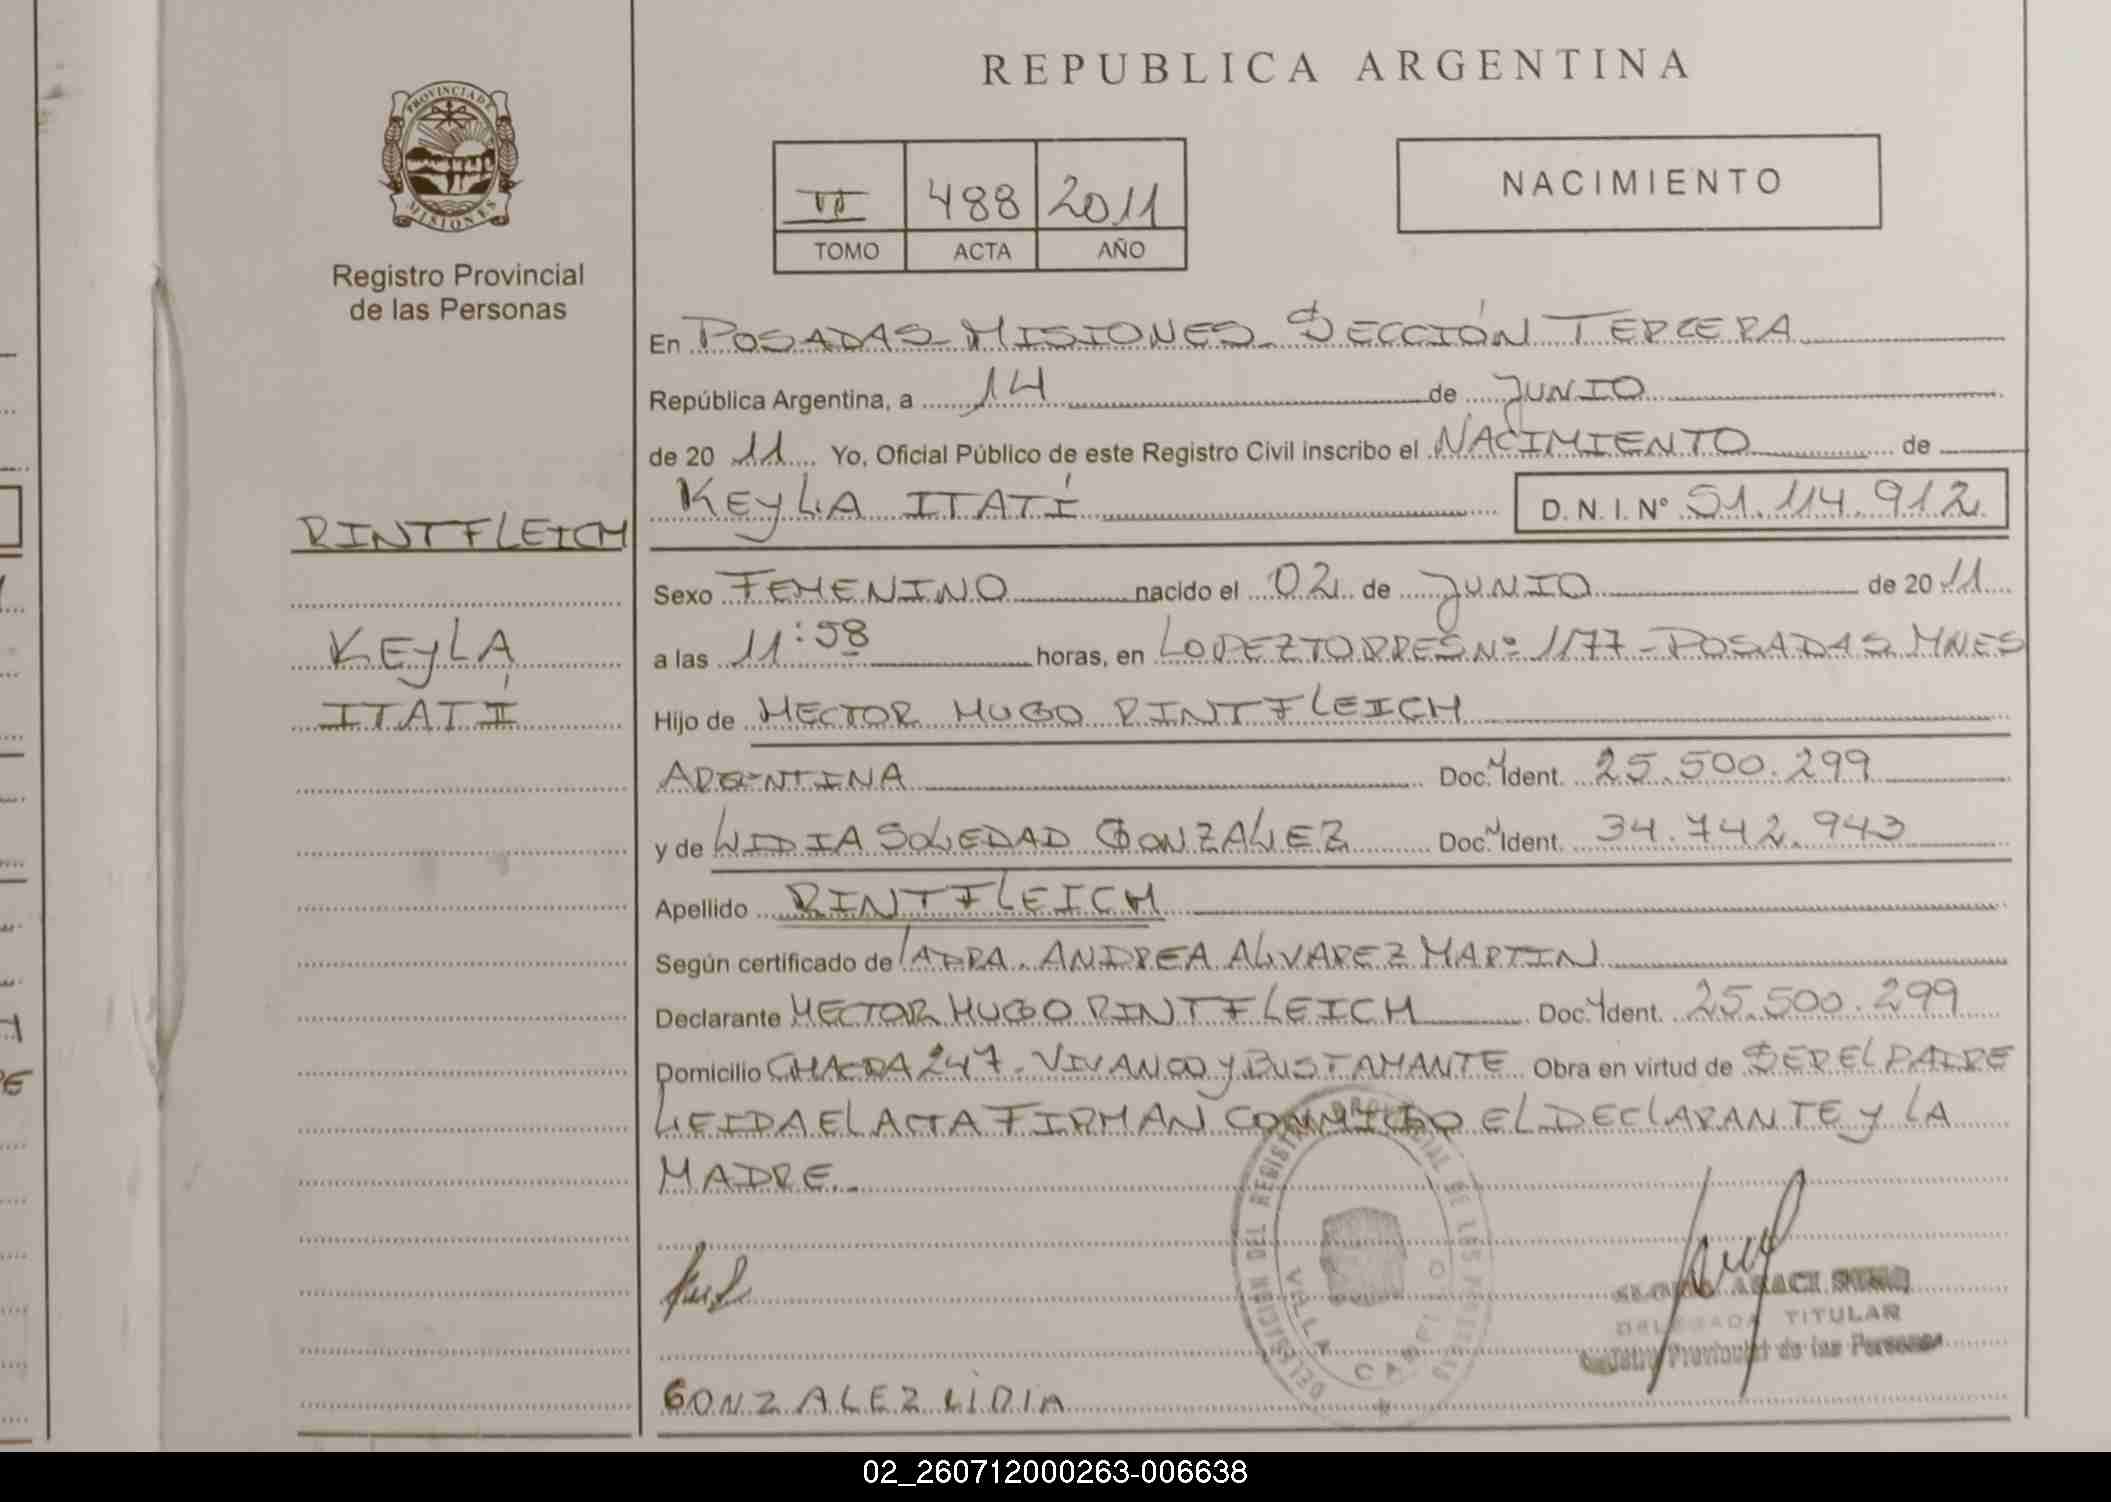 REPUBLICA ARGENTINA
PROVINCIA DE
MISIONES
Registro Provincial
de las Personas
VI 488 2011
TOMO ACTA AÑO
NACIMIENTO
En POSADAS-MISIONES-SECCIÓN TERCERA
República Argentina, a 14 de JUNIO
de 20 11 Yo, Oficial Público de este Registro Civil inscribo el NACIMIENTO de
KEYLA ITATÍ D. N. I. Nº 51.114.912
RINTFLEICH
KEYLA
ITATÍ
Sexo FEMENINO nacido el 02 de JUNIO de 20 11
a las 11:58 horas, en LOPEZ TORRES Nº 1177-POSADAS MNES
Hijo de HECTOR HUGO RINTFLEICH
ARGENTINA Doc. Ident. 25.500.299
y de LIDIA SOLEDAD GONZALEZ Doc. Ident. 34.742.943
Apellido RINTFLEICH
Según certificado de LA DRA. ANDREA ALVAREZ MARTIN
Declarante HECTOR HUGO RINTFLEICH Doc. Ident. 25.500.299
Domicilio CHACRA 247-VIVANCO Y BUSTAMANTE Obra en virtud de SER EL PADRE
LEIDA EL ACTA FIRMAN CONMIGO EL DECLARANTE Y LA
MADRE.-
DELEGADA TITULAR
Registro Provincial de las Personas
GONZALEZ LIDIA
02_260712000263-006638